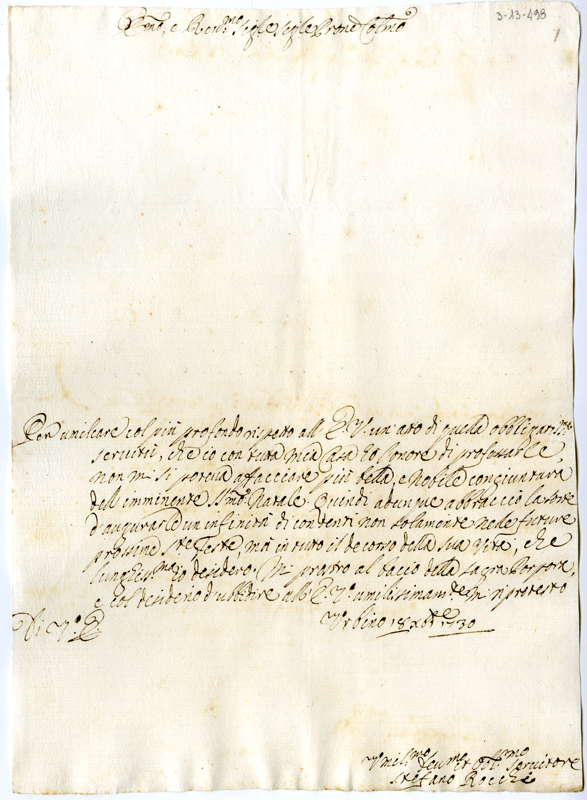 3-13-498
1
Em.º, e Reu.mo Sig.re Sig.re Prone Col.mo
Per umiliare col più profondo rispetto all' E V un' atto di quella obbligatis.ma
seruitù, che io con tutta mia Casa hò l'onore di professarle,
non mi si poteua affacciare più bella, e Nobile congiuntura
dell' imminente SS.mo Natale. Quindi adunque abbraccio la sorte
d'augurarle un infinità di contenti non solamente nelle future
prossime S.te Feste, mà in tutto il decorso della sua Vita, che
lunghiss.mo io desidero. Mi prostro al baccio della Sagra Porpora,
e col desiderio d'ubbidire all' E V.ª umilissimam.te mi riprotesto
Di V.ª E
Vrbino 18 Xbre 1730
Vmil.mo Deu.mo et Obl.mo Seruitore
Stefano Rocchi